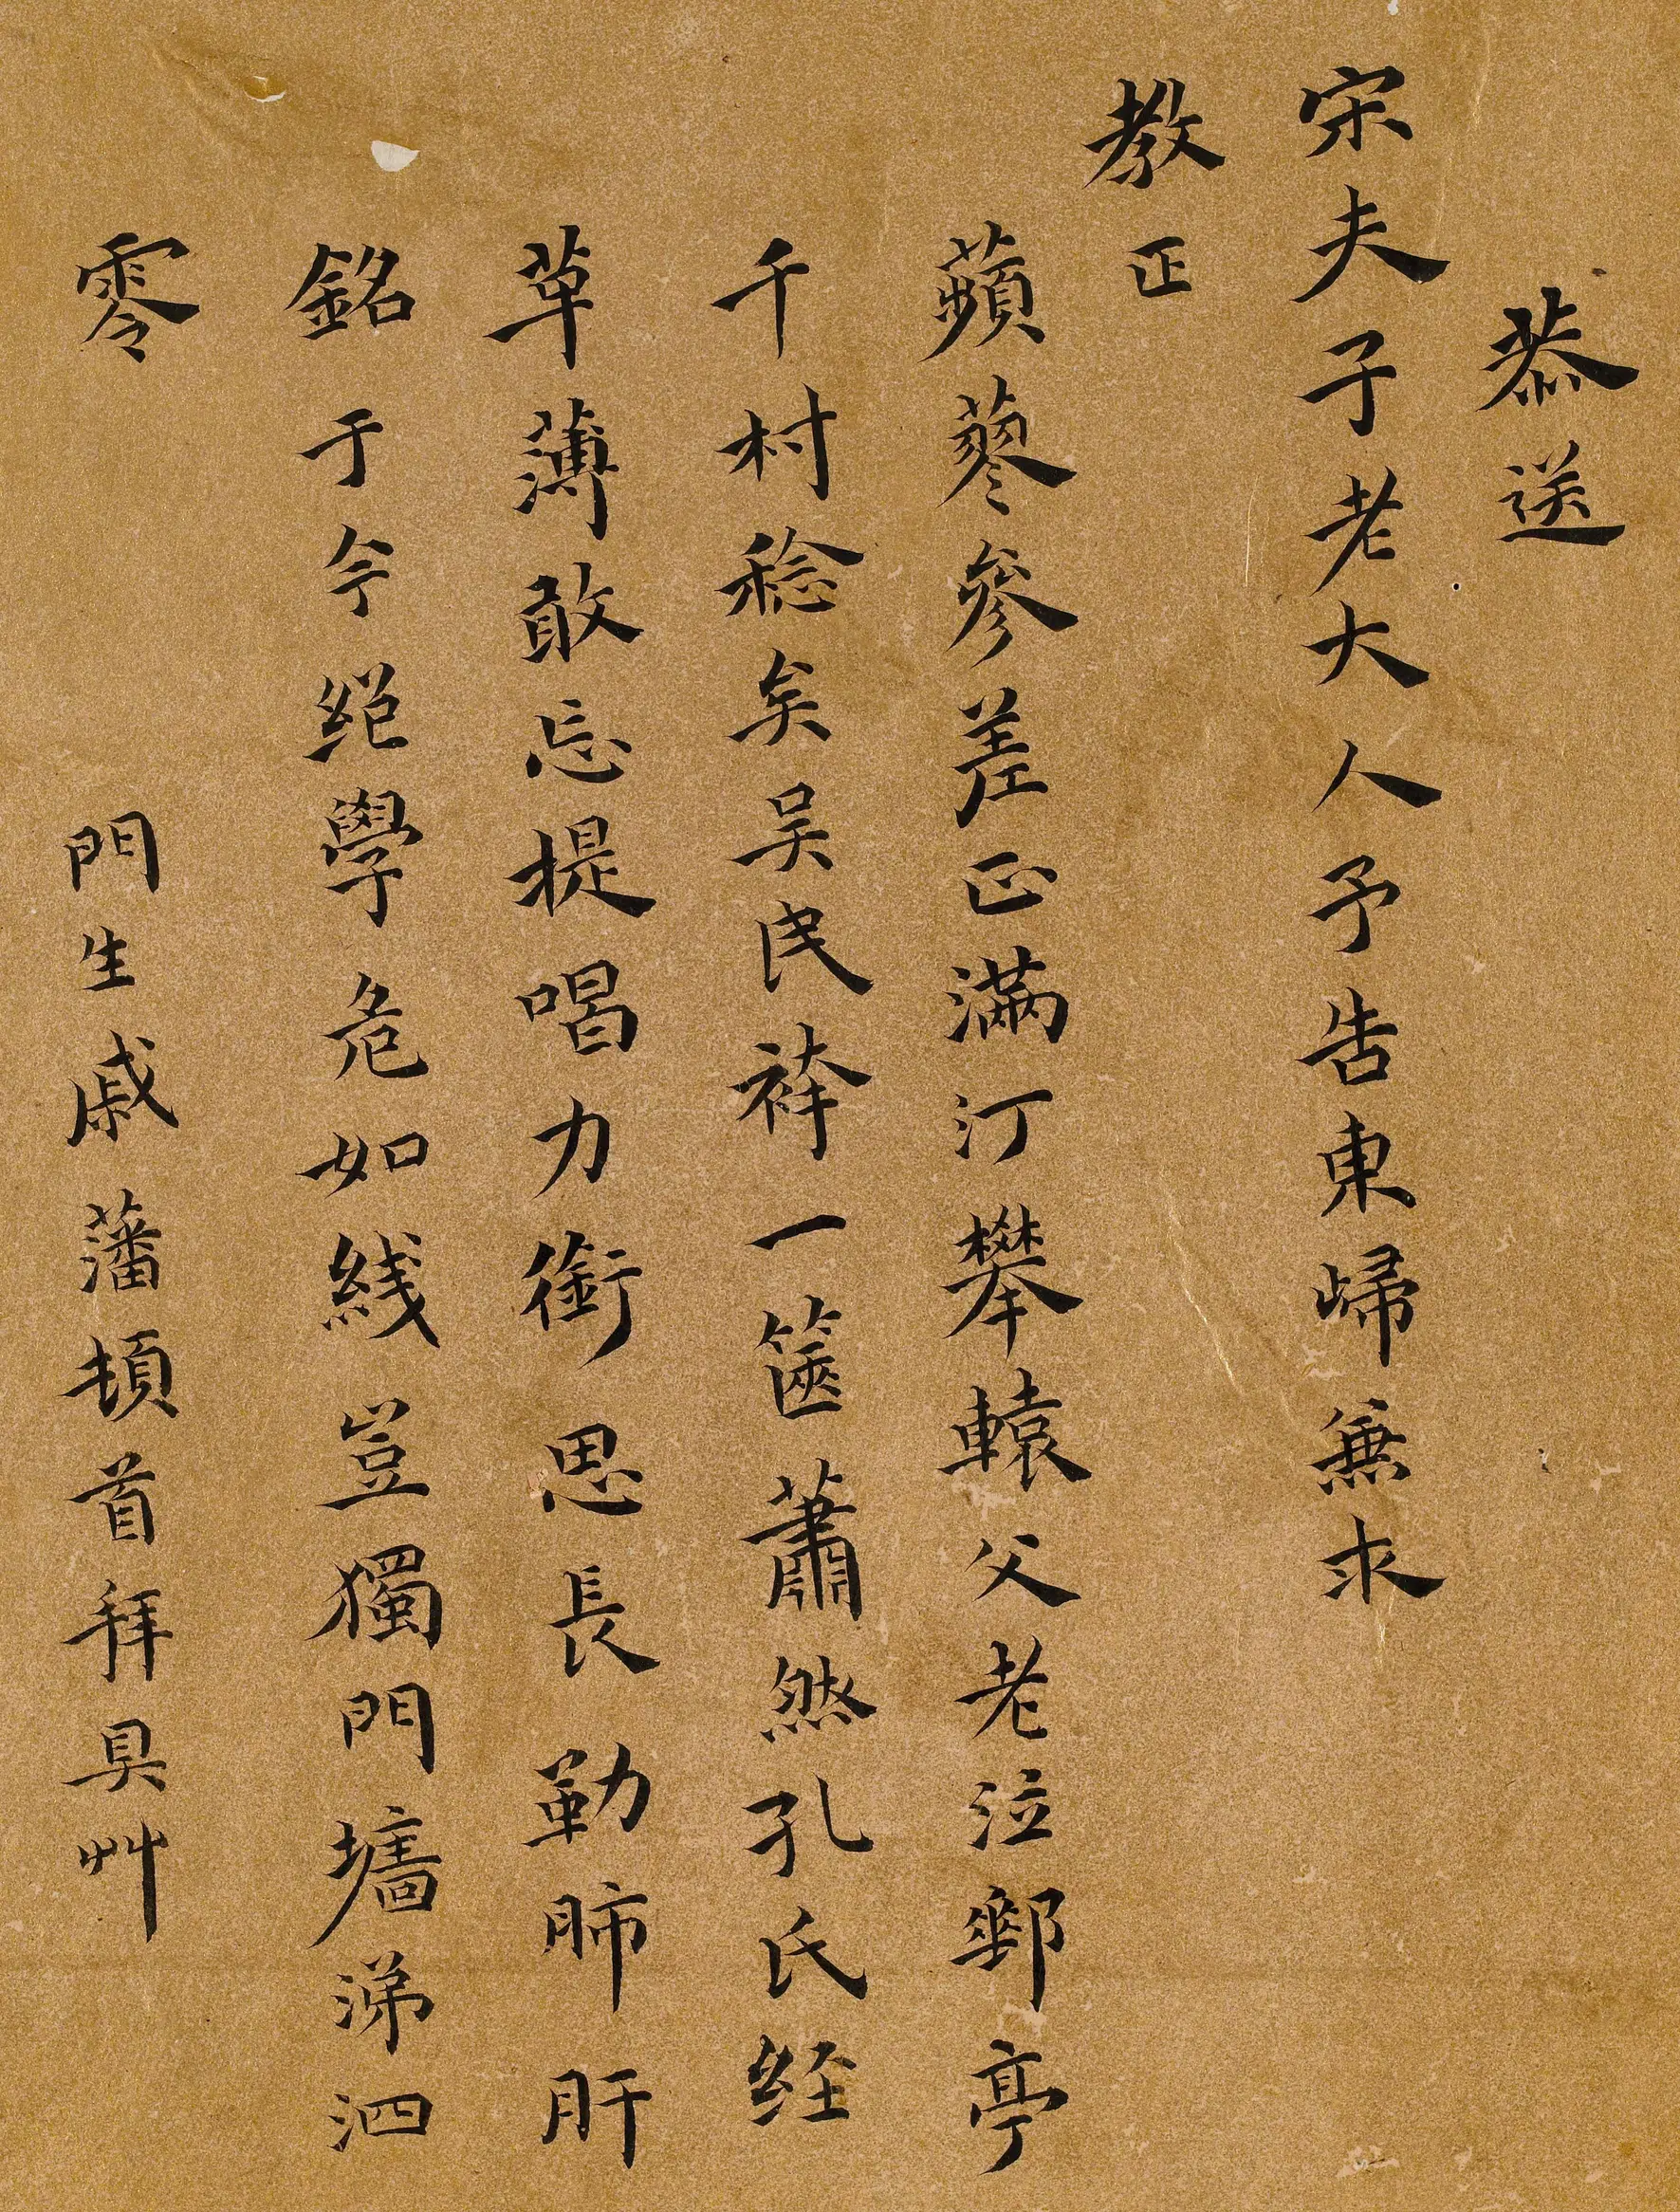 恭送
宋夫子老大人予告東歸兼求
教正
蘋蓼參差正滿汀攀轅父老泣郵亭
千村稔矣吴民袴一篋蕭然孔氏經
草薄敢忘提唱力銜思長勒肺肝
銘于今絕學危如綫豈獨門墻涕泗
零
門生戚藩頓首拜具艸